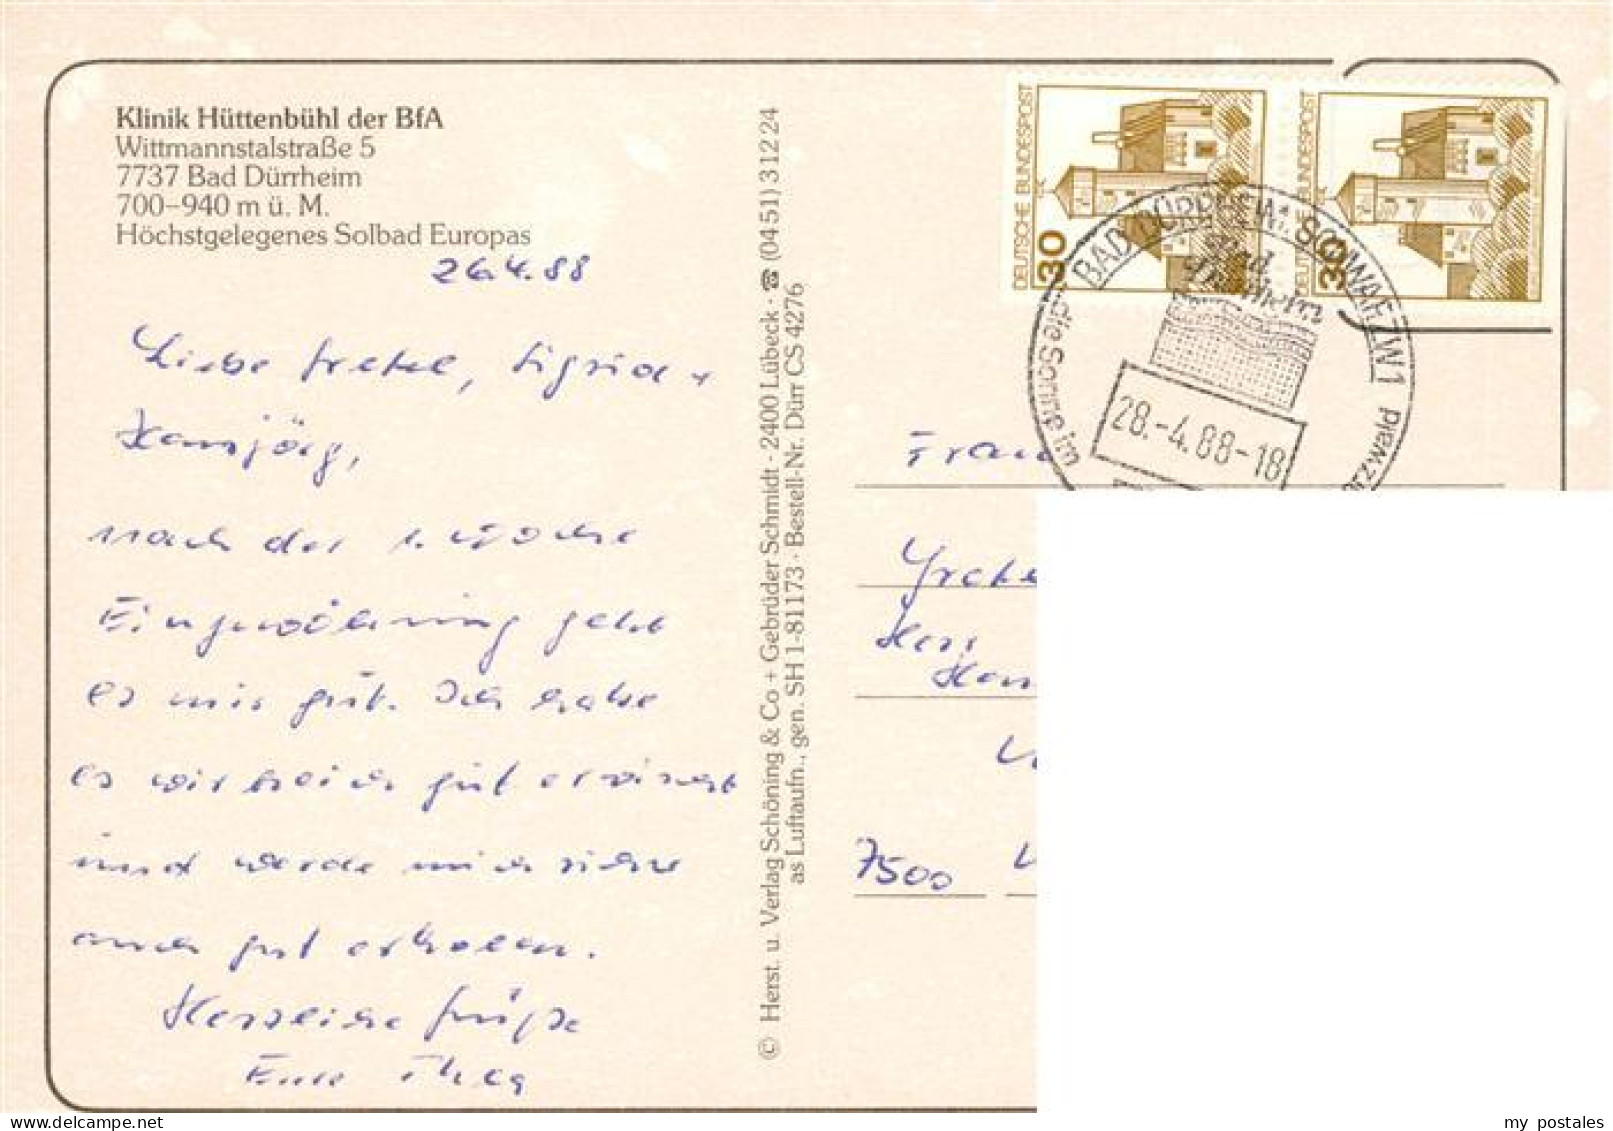 Klinik Hüttenbühl der BfA
Wittmannstalstraße 5
7737 Bad Dürrheim
700–940 m ü. M.
Höchstgelegenes Solbad Europas
26.4.88
Liebe Gretel, Sigrid +
Hansjörg,
nach der 1. Woche
Eingewöhnung geht
es mir gut. Ich habe
es wirklich gut erwischt
und werde mich sicher
auch gut erholen.
Herzliche Grüße
Eure
© Herst. u. Verlag Schöning & Co + Gebrüder Schmidt · 2400 Lübeck · ☎ (0451) 31224
as Luftaufn., gen. SH 1-81173 · Bestell-Nr. Dürr CS 4276
DEUTSCHE BUNDESPOST
30
DEUTSCHE BUNDESPOST
30
BAD DÜRRHEIM, SCHWARZW 1
Bad
Dürrheim
die Sonne im
rzwald
28.-4.88-18
Frau
Grete
Herr
Han
7500
my postales